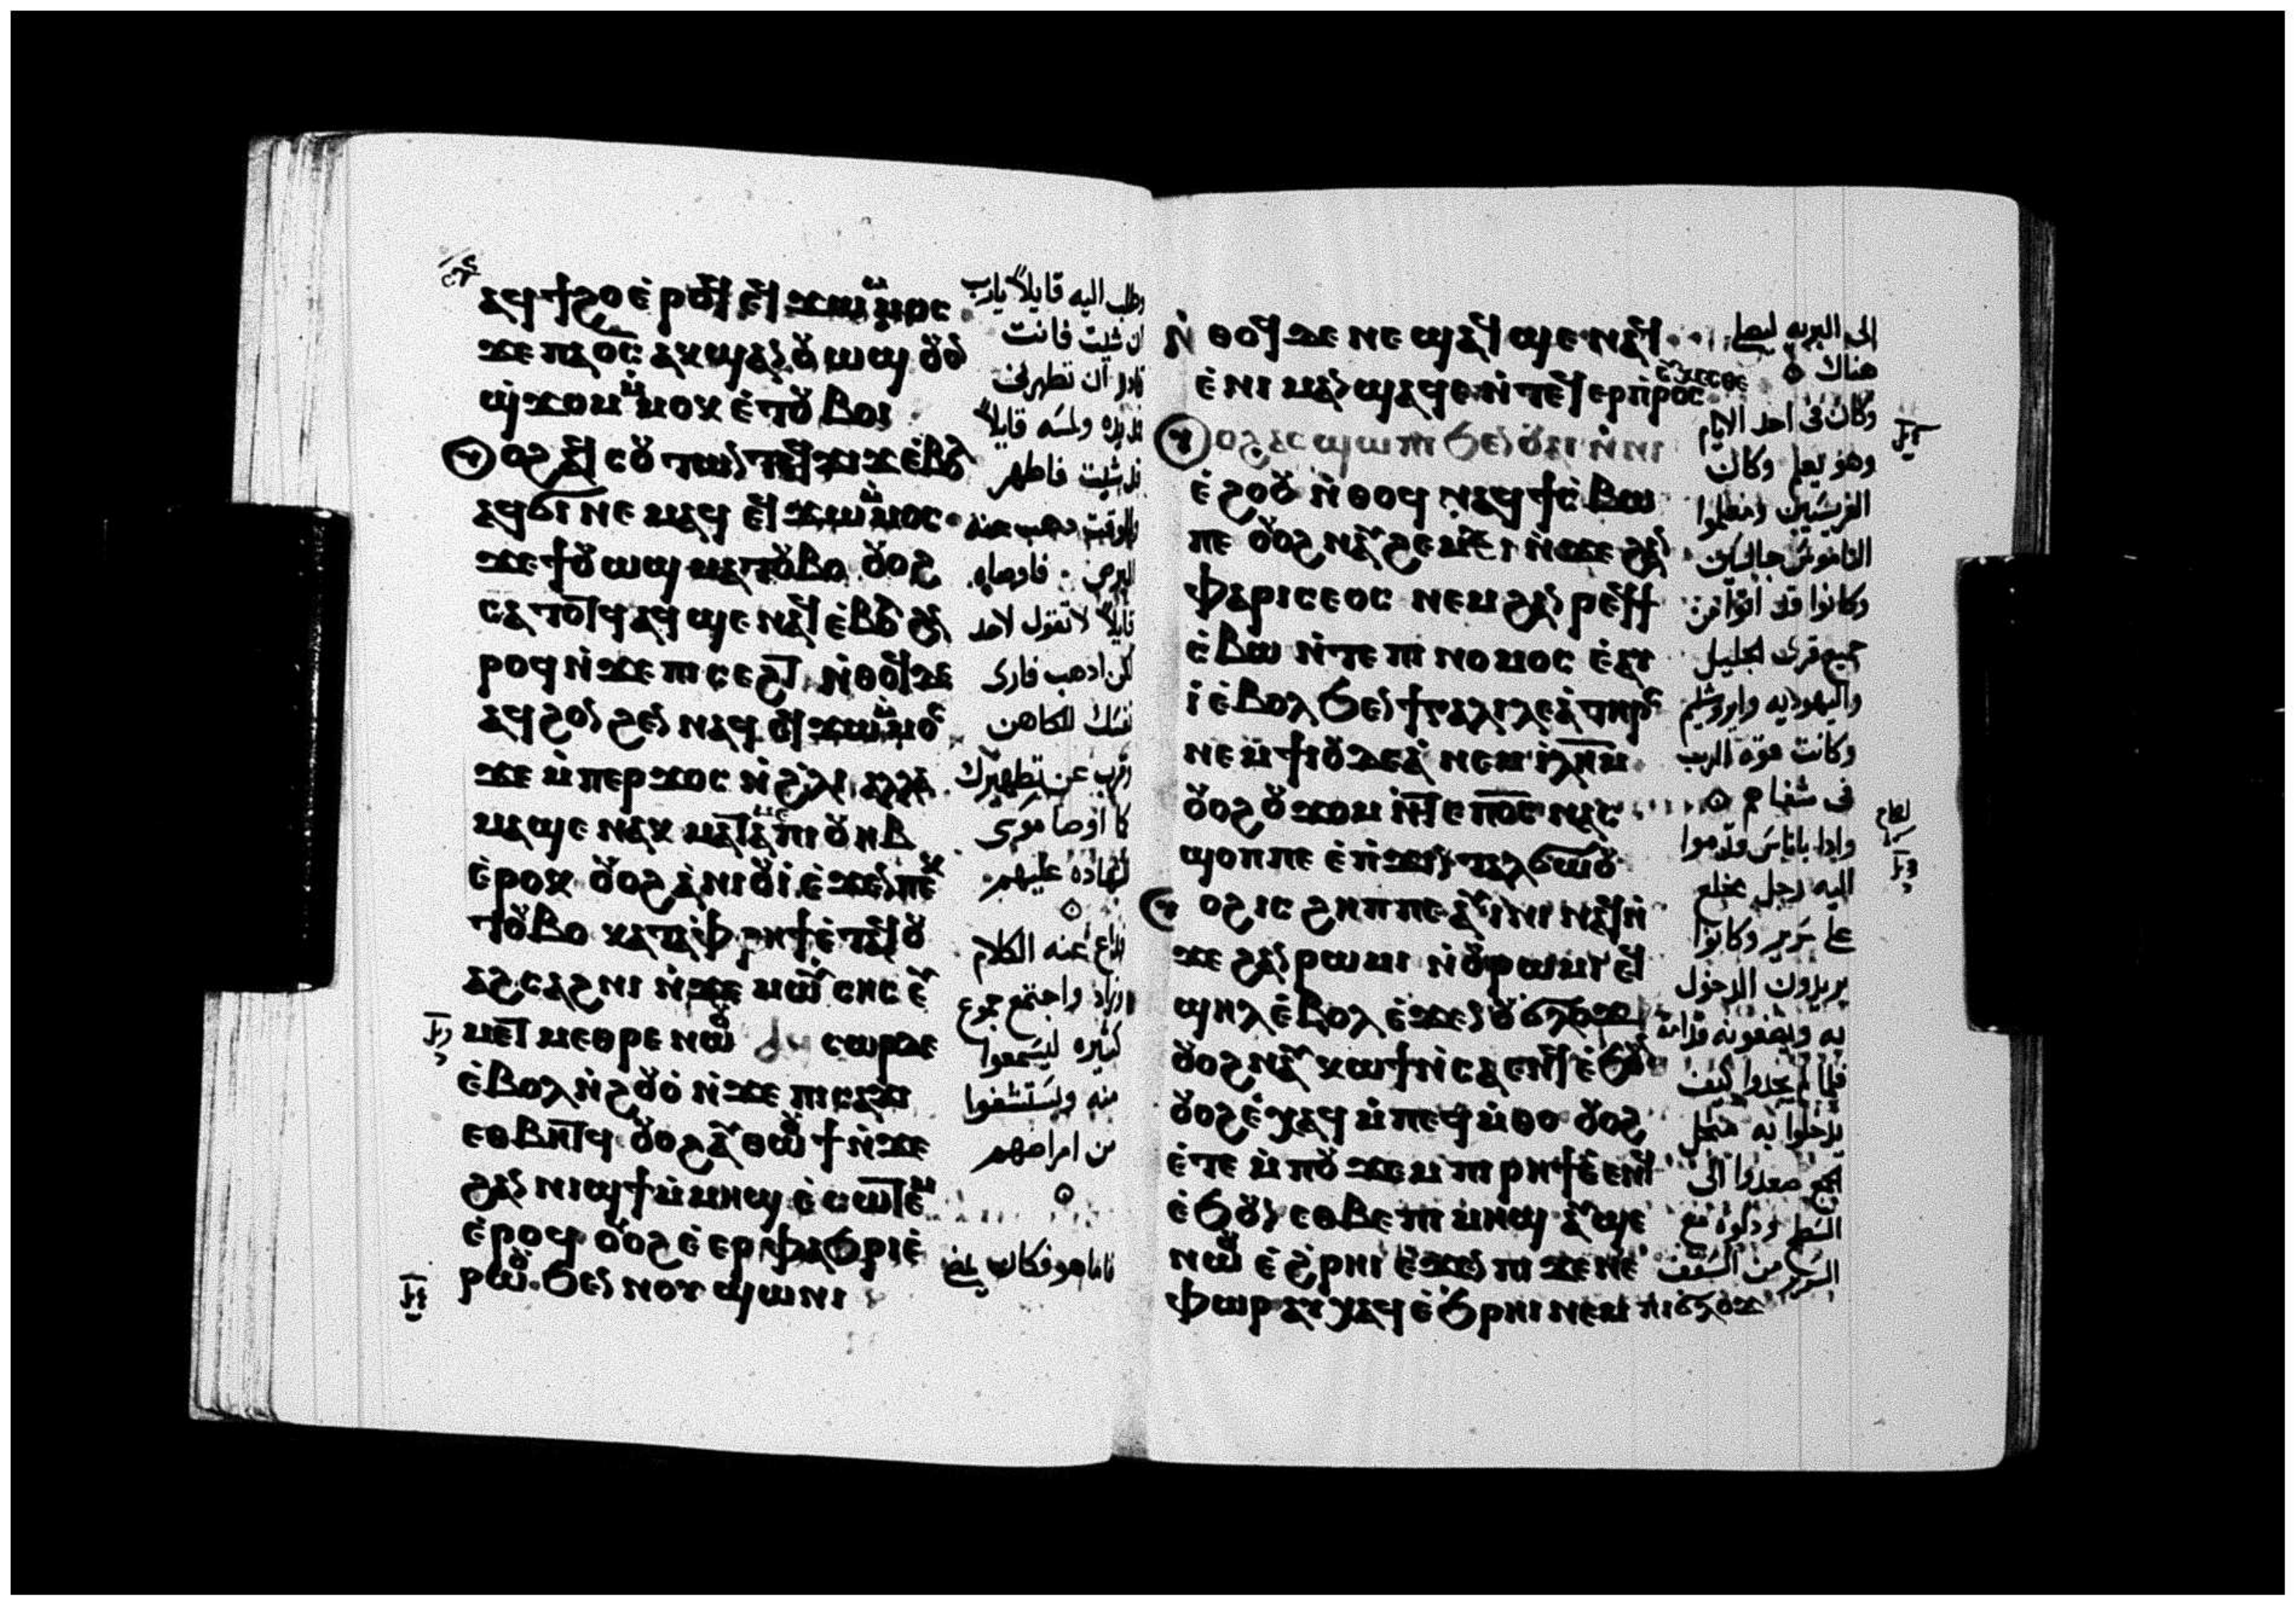 ⲁϥϯϩⲟ ⲉ̀ⲣⲟϥ ⲉϥϫⲱ ⲙ̀ⲙⲟⲥ
ϫⲉ ⲡⲁⲟ̅ⲥ̅ ⲁⲕϣⲁⲛⲟⲩⲱϣ ⲟⲩⲟⲛ
ϣϫⲟⲙ ⲙ̀ⲙⲟⲕ ⲉ̀ⲧⲟⲩⲃⲟⲓ
ⲥⲟⲩⲧⲱⲛ ⲧⲉϥϫⲓϫ ⲉ̀ⲃⲟⲗ
ⲁϥϭⲓ ⲛⲉⲙⲁϥ ⲉϥϫⲱ ⲙ̀ⲙⲟⲥ
ϫⲉ ϯⲟⲩⲱϣ ⲙⲁⲧⲟⲩⲃⲟ ⲟⲩⲟϩ
ⲥⲁⲧⲟⲧϥ ⲁϥϣⲉ ⲛⲁϥ ⲉ̀ⲃⲟⲗ ϩⲁ
ⲣⲟϥ ⲛ̀ϫⲉ ⲡⲓⲥⲉϩⲧ ⲛ̀ⲑⲟϥ ⲇⲉ
ⲁϥϩⲟⲛϩⲉⲛ ⲛⲁϥ ⲉϥϫⲱ ⲙ̀ⲙⲟⲥ
ϫⲉ ⲙ̀ⲡⲉⲣϫⲟⲥ ⲛ̀ϩ̀ⲗⲓ ⲁⲗⲗⲁ
ⲙⲁϣⲉ ⲛⲁⲕ ⲙⲁⲧⲁⲙⲉ ⲡⲓⲟⲩⲏⲃ
ⲉ̀ⲣⲟⲕ ⲟⲩⲟϩ ⲁ̀ⲛⲓⲟⲩⲓ̀ ⲉ̀ϫⲉⲛ ⲡⲉⲕ
ⲧⲟⲩⲃⲟ ⲕⲁⲧⲁ ⲫ̀ⲣⲏϯ ⲉ̀ⲧⲁϥⲟⲩ
ⲁϩⲥⲁϩⲛⲓ ⲛ̀ϫⲉ ⲙⲱⲩⲥⲏⲥ ⲉⲩ
ⲙⲉⲧⲙⲉⲑⲣⲉ ⲛⲱⲟⲩ ⲥⲱⲣ ⲇⲉ
ⲉ̀ⲃⲟⲗ ⲛ̀ϩⲟⲩⲟ̀ ⲛ̀ϫⲉ ⲡⲓⲥⲁϫⲓ
ⲉⲑⲃⲏⲧϥ ⲟⲩⲟϩ ⲁⲩⲑⲱⲟⲩϯ ⲛ̀ϫⲉ
ϩⲁⲛⲛⲓϣϯ ⲙ̀ⲙⲏϣ ⲉ̀ⲥⲱⲧⲉⲙ
ⲉ̀ⲣⲟϥ ⲟⲩⲟϩ ⲉ̀ⲉⲣⲫⲁϧⲣⲓ ⲉ̀
ⲣⲱⲟⲩ ϧⲉⲛ ⲛⲟⲩϣⲱⲛⲓ
وطلب اليه قايلاً يارب
ان شيت فانت
قادر ان تطهرنى
فمد يده ولمسه قايلاً
قد شيت فاطهر
وللوقت ذهب عنه
البرص فاوصاه
قايلاً لا تقول لاحد
لكن اذهب فارى
نفسك للكاهن
وقرب عن تطهيرك
كما اوصا موسى
شهادة عليهم
فذاع عنه الكلام
وزاد واجتمع جموع
كثيره ليسمعوا
منه ويستشفوا
من امراضهم
فاما هو فكان يمضى
ⲛ̀ⲑⲟϥ ⲇⲉ ⲛⲉ ϣⲁϥϣⲉ ⲛⲁϥ
ⲉ̀ⲛⲓⲙⲁⲛϣⲁϥⲉ ⲛ̀ⲧⲉϥⲉⲣⲡ̀ⲣⲟⲥⲉⲩⲭⲉⲥⲑⲉ
ⲟⲩⲟϩ ⲁⲥϣⲱⲡⲓ ϧⲉⲛ ⲟⲩⲁⲓ ⲛ̀ⲛⲓ
ⲉ̀ϩⲟⲟⲩ ⲛ̀ⲑⲟϥ ⲛⲁϥϯⲥ̀ⲃⲱ
ⲡⲉ ⲟⲩⲟϩ ⲛⲁⲩϩⲉⲙⲥⲓ ⲛ̀ϫⲉ ϩⲁⲛ
ⲫⲁⲣⲓⲥⲉⲟⲥ ⲛⲉⲙ ϩⲁⲛⲣⲉϥϯ
ⲥ̀ⲃⲱ ⲛ̀ⲧⲉ ⲡⲓⲛⲟⲙⲟⲥ ⲉ̀ⲁⲩ
ⲓ̀ ⲉ̀ⲃⲟⲗ ϧⲉⲛ ϯⲅⲁⲗⲓⲗⲉⲁ̀ ⲧⲏⲣⲥ
ⲛⲉⲙ ϯⲓⲟⲩⲇⲉⲁ̀ ⲛⲉⲙ ⲓ̀ⲗ̅ⲏ̅ⲙ̅
ⲟⲩⲟϩ ⲟⲩϫⲟⲙ ⲛ̀ⲧⲉ ⲡ̅ⲟ̅ⲥ̅ ⲛⲁⲥ
ϣⲟⲡ ⲡⲉ ⲉ̀ⲡ̀ϫⲓⲛⲧⲁⲗϭⲱⲟⲩ
ⲟⲩⲟϩ ⲓⲥ ϩⲏⲡⲡⲉ ⲁⲩⲓⲛⲓ ⲛⲁϥ ⲛ̀
ϫⲉ ϩⲁⲛⲣⲱⲙⲓ ⲛ̀ⲟⲩⲣⲱⲙⲓ ⲉϥ
ϣⲏⲗ ⲉ̀ⲃⲟⲗ ⲉ̀ϫⲉⲛ ⲟⲩϭⲗⲟϫ
ⲟⲩⲟϩ ⲛⲁⲩⲕⲱϯ ⲛ̀ⲥⲁ ⲉⲛϥ ⲉ̀ϧⲟⲩⲛ
ⲟⲩⲟϩ ⲉ̀ⲭⲁϥ ⲙ̀ⲡⲉϥⲙ̀ⲑⲟ ⲟⲩⲟϩ
ⲉ̀ⲧⲉ ⲙ̀ⲡⲟⲩϫⲉⲙ ⲡⲓⲣⲏϯ ⲉ̀ⲉⲛϥ
ⲉ̀ϧⲟⲩⲛ ⲉⲑⲃⲉ ⲡⲓⲙⲏϣ ⲁⲩϣⲉ
ⲛⲱⲟⲩ ⲉ̀ϩ̀ⲣⲏⲓ ⲉ̀ϫⲉⲛ ⲡⲓϫⲉⲛⲉ
ⲫⲱⲣ ⲁⲩⲭⲁϥ ⲉ̀ϧ̀ⲣⲏⲓ ⲛⲉⲙ ⲡⲓϭⲗⲟϫ
الى البريه ليصلى
هناك
وكان فى احد الايام
وهو يعلم وكان
الفريسيين ومعلموا
الناموس جالسين
وكانوا قد اتوا من
جميع قرى الجليل
واليهوديه وايروشليم
وكانت قوة الرب
فى شفاهم
واذا باناس قدموا
اليه رجل مخلع
على سرير وكانوا
يريدون الدخول
به ويضعونه قدامه
فلما لم يجدوا كيف
يدخلوا به
الجمع صعدوا الى
السطح ودلوه مع
السرير من السقف